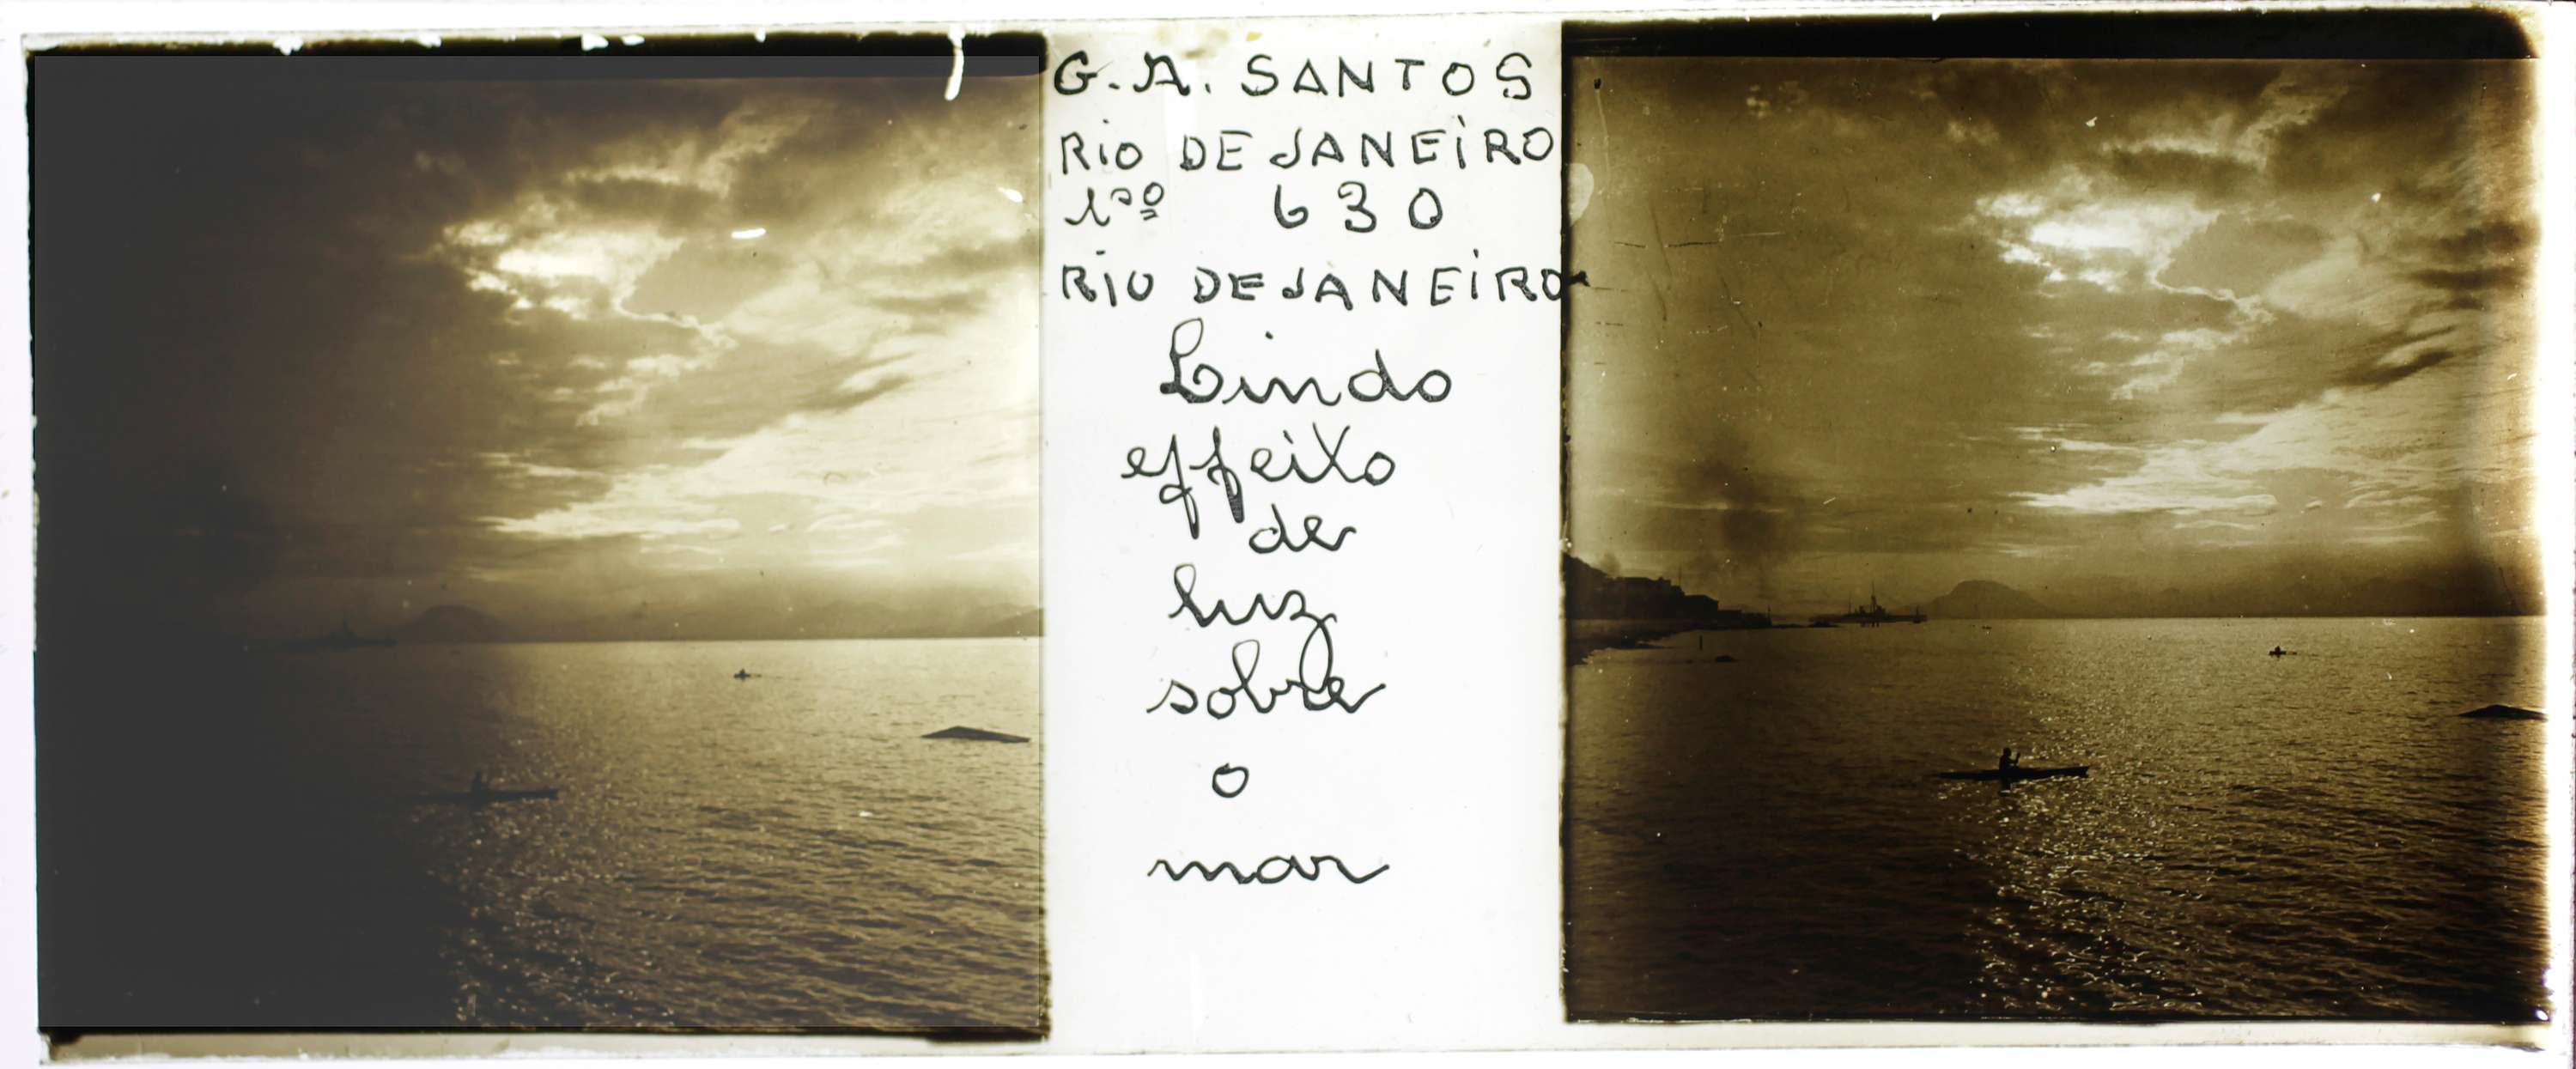 G. A. SANTOS
RiO DE JANEiRO
Nº 630
RiO DE JANEiRO
Lindo
effeito
de
luz
sobre
o
mar